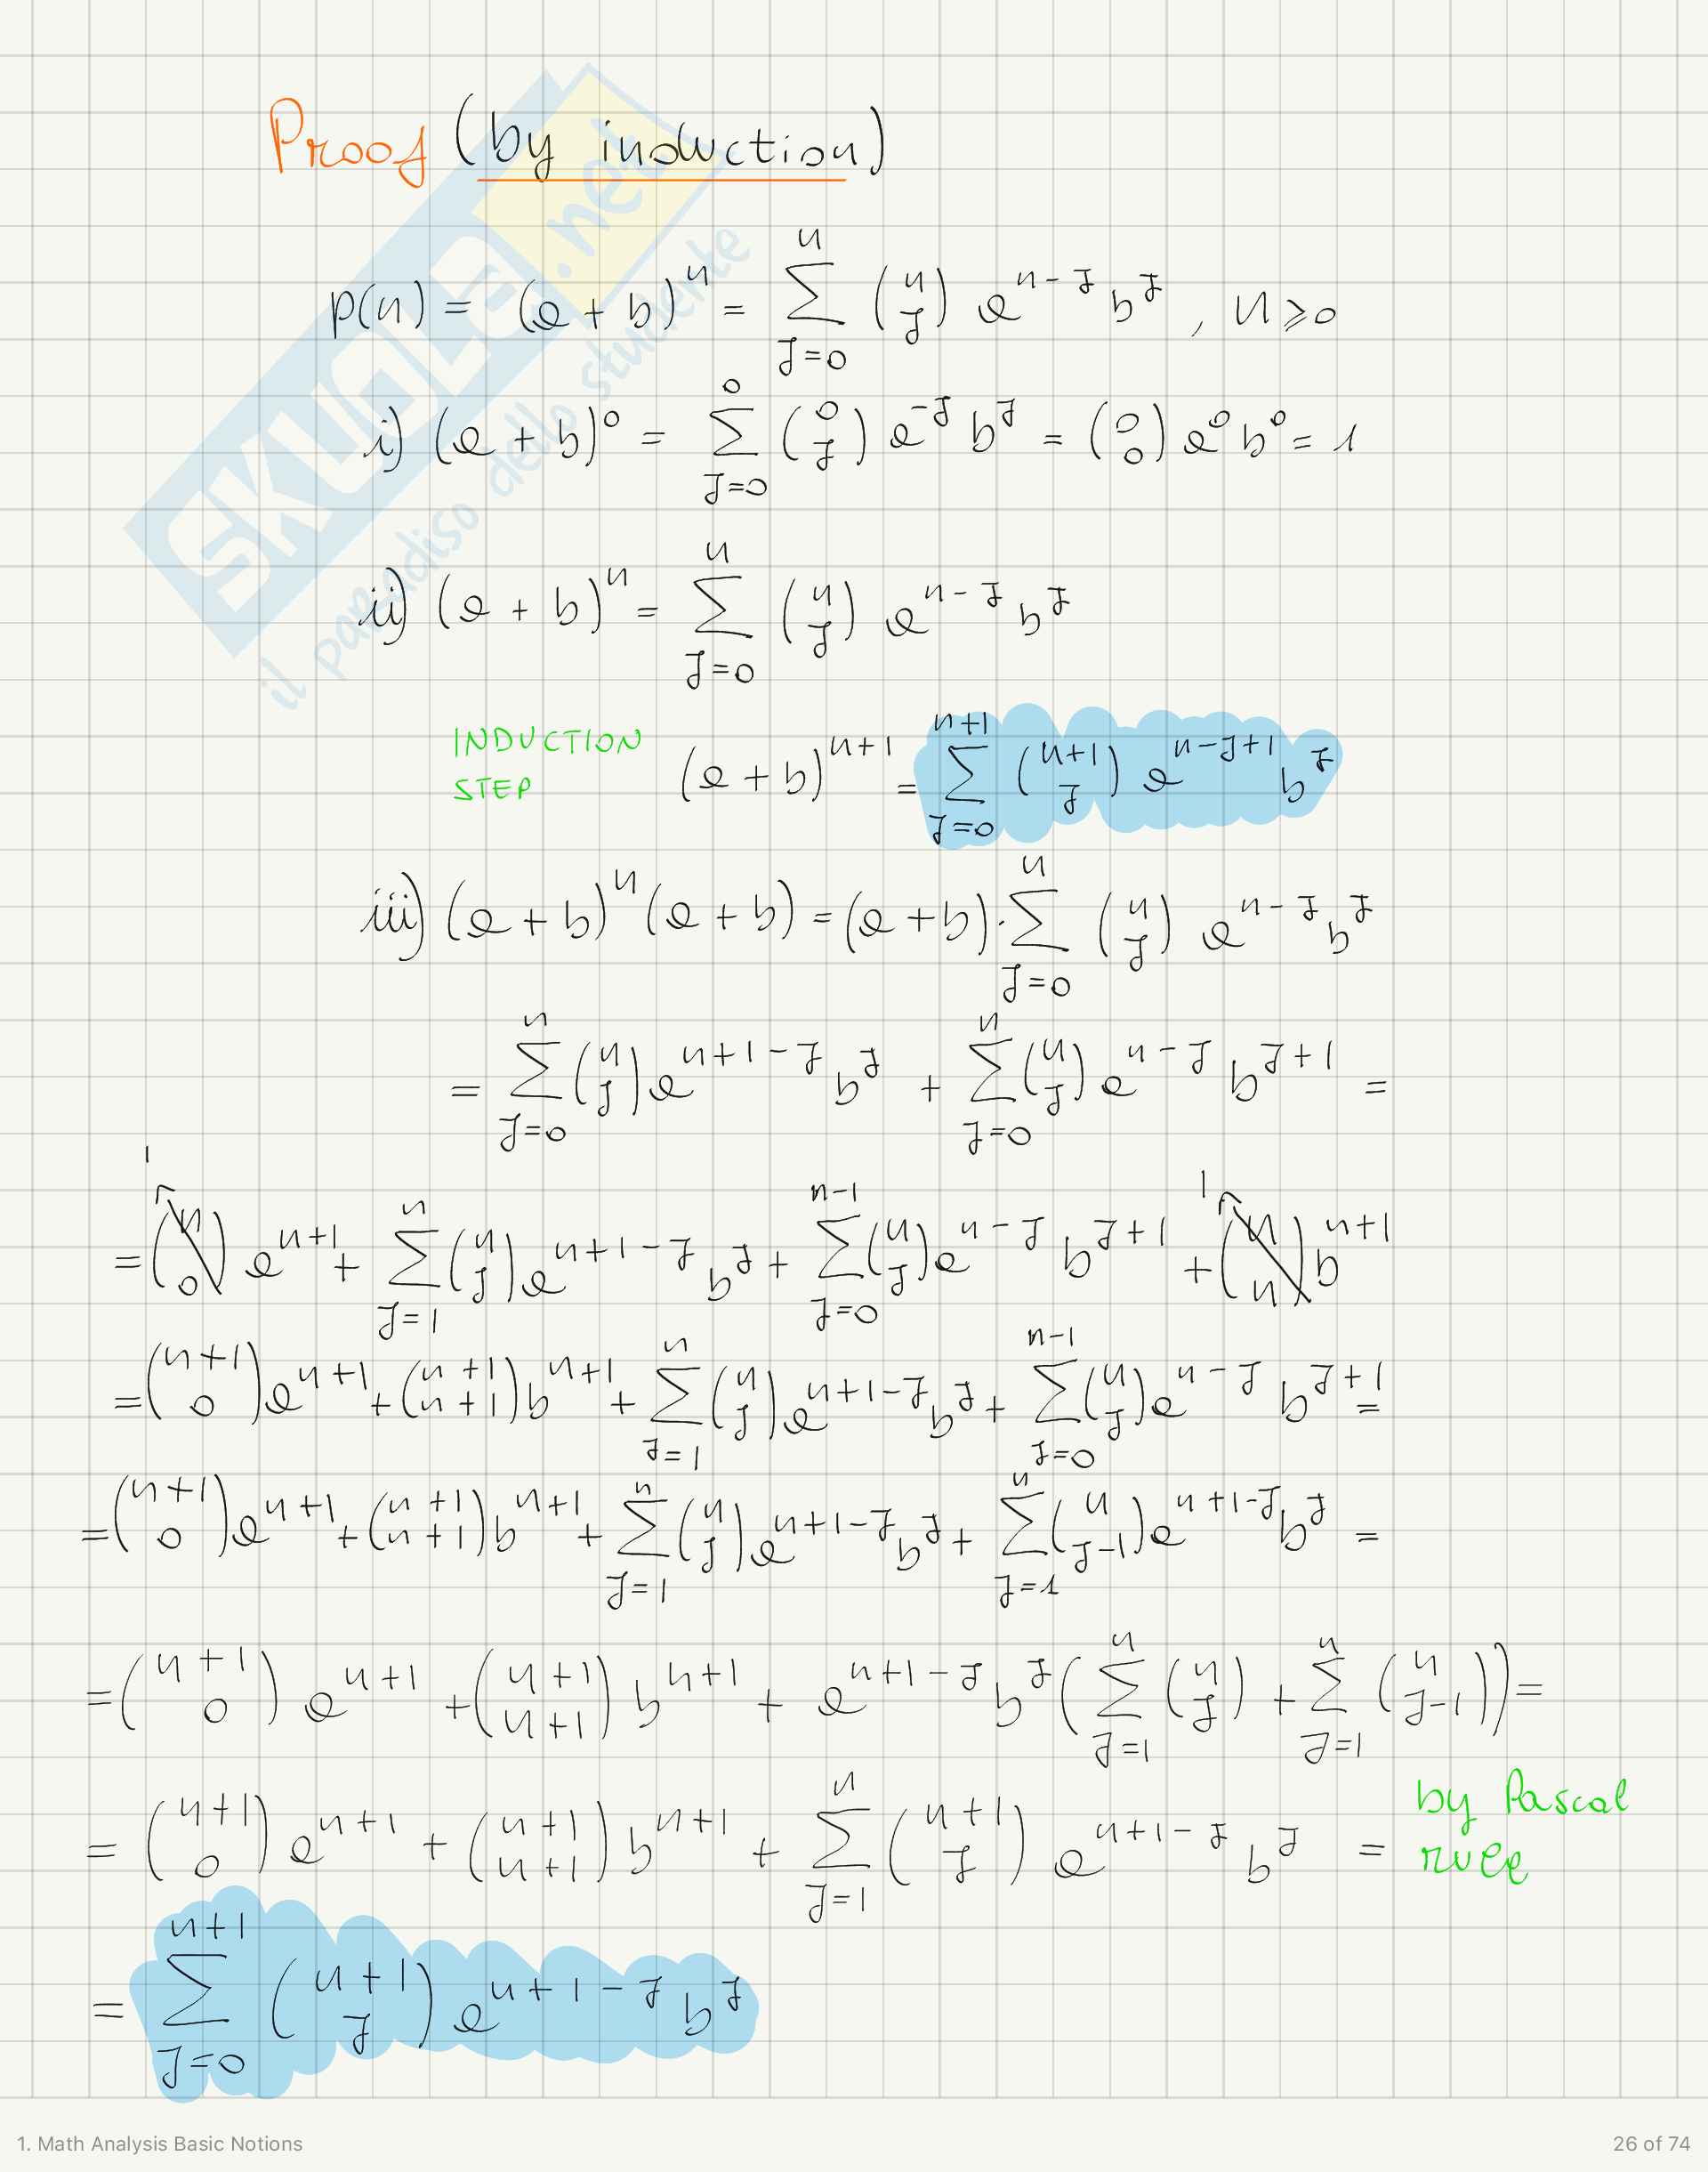 Proof (by induction)
p(n) = (a + b)^n = \sum_{J=0}^{n} \binom{n}{J} a^{n-J} b^J , n ⩾ 0
i) (a + b)^0 = \sum_{J=0}^{0} \binom{0}{J} a^{-J} b^J = \binom{0}{0} a^0 b^0 = 1
ii) (a + b)^n = \sum_{J=0}^{n} \binom{n}{J} a^{n-J} b^J
INDUCTION
STEP
(a + b)^{n+1} = \sum_{J=0}^{n+1} \binom{n+1}{J} a^{n-J+1} b^J
iii) (a + b)^n (a + b) = (a + b) · \sum_{J=0}^{n} \binom{n}{J} a^{n-J} b^J
= \sum_{J=0}^{n} \binom{n}{J} a^{n+1-J} b^J + \sum_{J=0}^{n} \binom{n}{J} a^{n-J} b^{J+1} =
1 1
= \binom{n}{0} a^{n+1} + \sum_{J=1}^{n} \binom{n}{J} a^{n+1-J} b^J + \sum_{J=0}^{n-1} \binom{n}{J} a^{n-J} b^{J+1} + \binom{n}{n} b^{n+1}
= \binom{n+1}{0} a^{n+1} + \binom{n+1}{n+1} b^{n+1} + \sum_{J=1}^{n} \binom{n}{J} a^{n+1-J} b^J + \sum_{J=0}^{n-1} \binom{n}{J} a^{n-J} b^{J+1} =
= \binom{n+1}{0} a^{n+1} + \binom{n+1}{n+1} b^{n+1} + \sum_{J=1}^{n} \binom{n}{J} a^{n+1-J} b^J + \sum_{J=1}^{n} \binom{n}{J-1} a^{n+1-J} b^J =
= \binom{n+1}{0} a^{n+1} + \binom{n+1}{n+1} b^{n+1} + a^{n+1-J} b^J ( \sum_{J=1}^{n} \binom{n}{J} + \sum_{J=1}^{n} \binom{n}{J-1} ) =
= \binom{n+1}{0} a^{n+1} + \binom{n+1}{n+1} b^{n+1} + \sum_{J=1}^{n} \binom{n+1}{J} a^{n+1-J} b^J =
by Pascal
rule
= \sum_{J=0}^{n+1} \binom{n+1}{J} a^{n+1-J} b^J
SKUOLA.net
il paradiso dello studente
1. Math Analysis Basic Notions
26 of 74